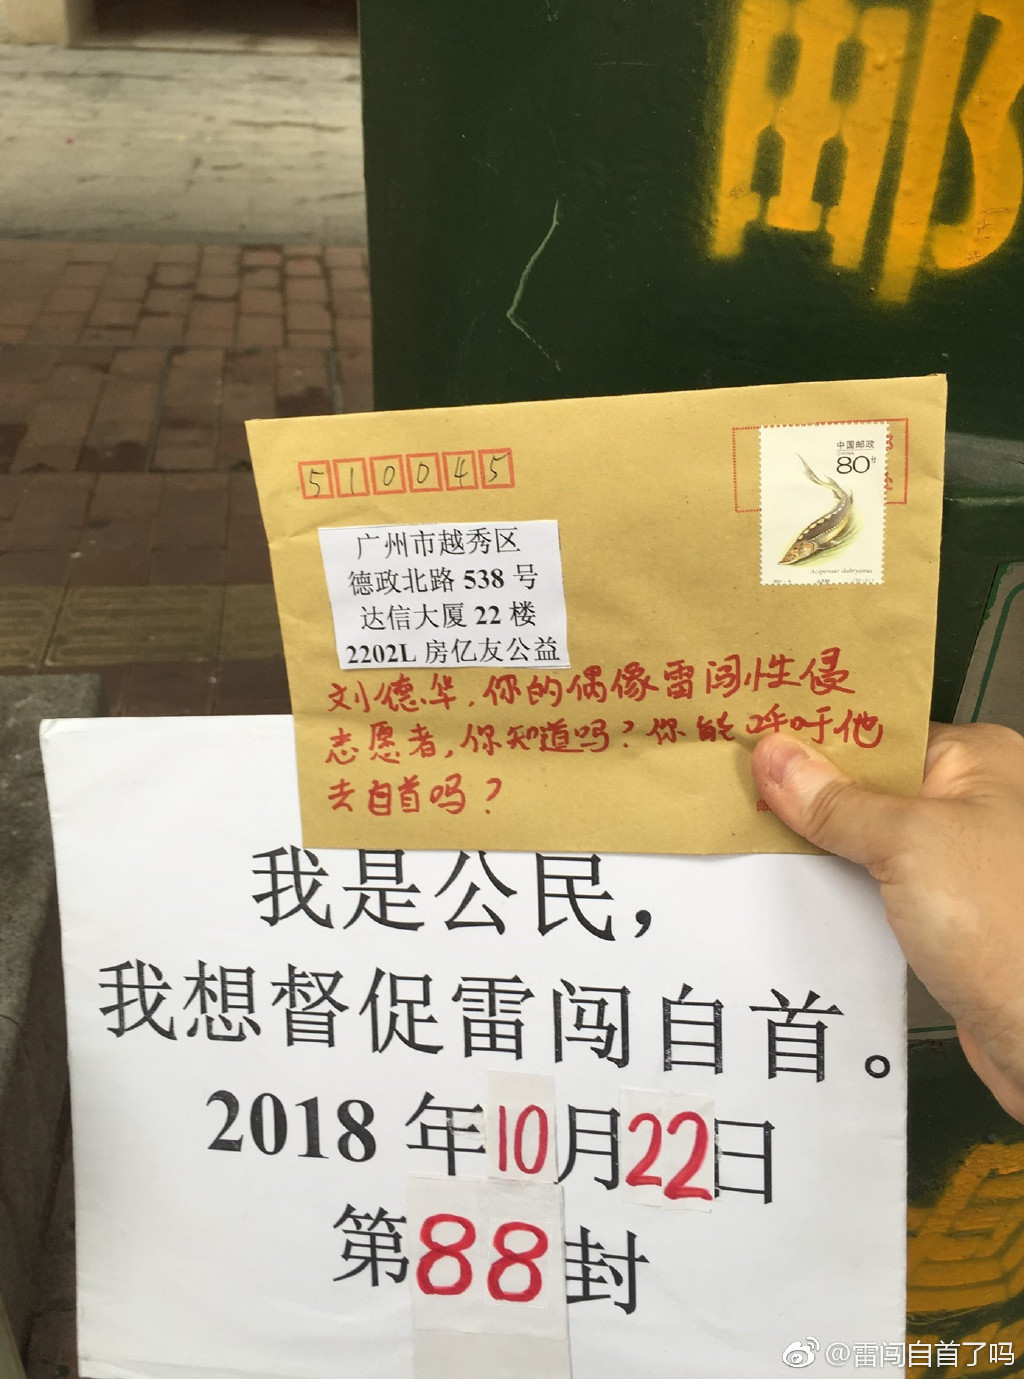 邮
510045
中国邮政
CHINA
80分
Acipenser dabryanus
广州市越秀区
德政北路 538 号
达信大厦 22 楼
2202L 房亿友公益
刘德华，你的偶像雷闯性侵
志愿者，你知道吗？你能呼吁他
去自首吗？
我是公民，
我想督促雷闯自首。
2018 年10月22日
第88封
@雷闯自首了吗